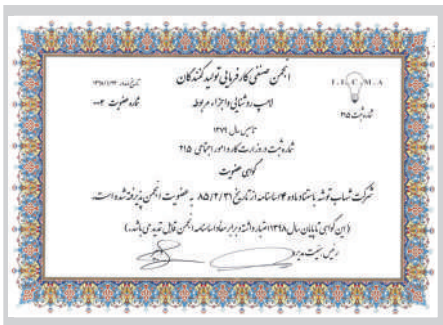 انجمن صنفی کارفرمایی تولید کنندگان
لامپ روشنایی و اجزاء مربوطه
تاسیس سال ۱۳۷۹
شماره ثبت در وزارت کار و امور اجتماعی ۲۱۵
گواهی عضویت
I.L.C.M.A
شماره ثبت ۲۱۵
شماره عضویت ۰۰۲
شرکت شهاب توشه باستناد ماده ۴ اساسنامه از تاریخ ۸۵/۲/۳۱ به عضویت انجمن پذیرفته شده است.
(این گواهی تا پایان سال ۱۳۹۸ اعتبار داشته و برابر مفاد اساسنامه انجمن قابل تمدید می باشد.)
رئیس هیئت مدیره